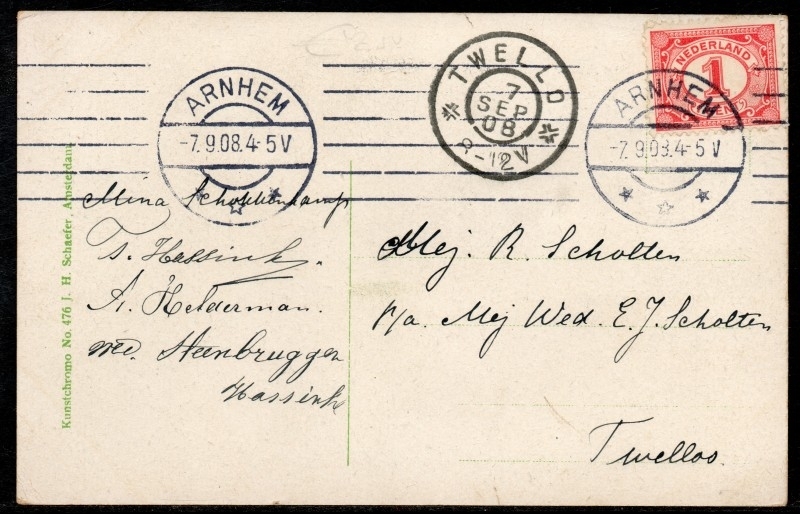 NEDERLAND
1
CENT
ARNHEM
-7.9.08.4-5V
TWELLO
7
SEP
08
8-12V
ARNHEM
-7.9.08.4-5V
Mina Schokkenkamp
Ts. Hassink.
A. Helderman.
wed. Steenbruggen
Hassink
Mej. R. Scholten
p/a. Mej Wed. E.J. Scholten
Twelloo.
Kunstchromo No. 476 J. H. Schaefer, Amsterdam.